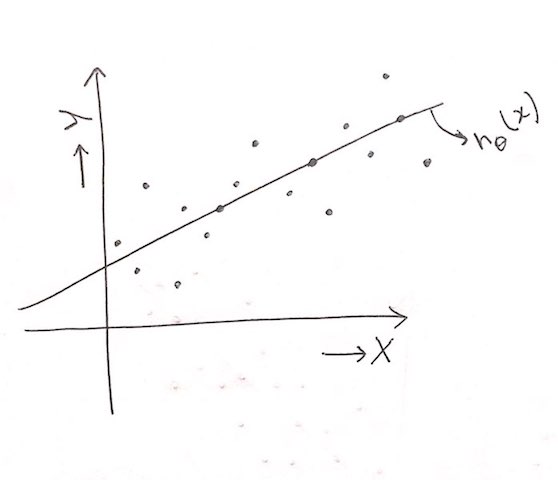 Y
hθ(x)
X